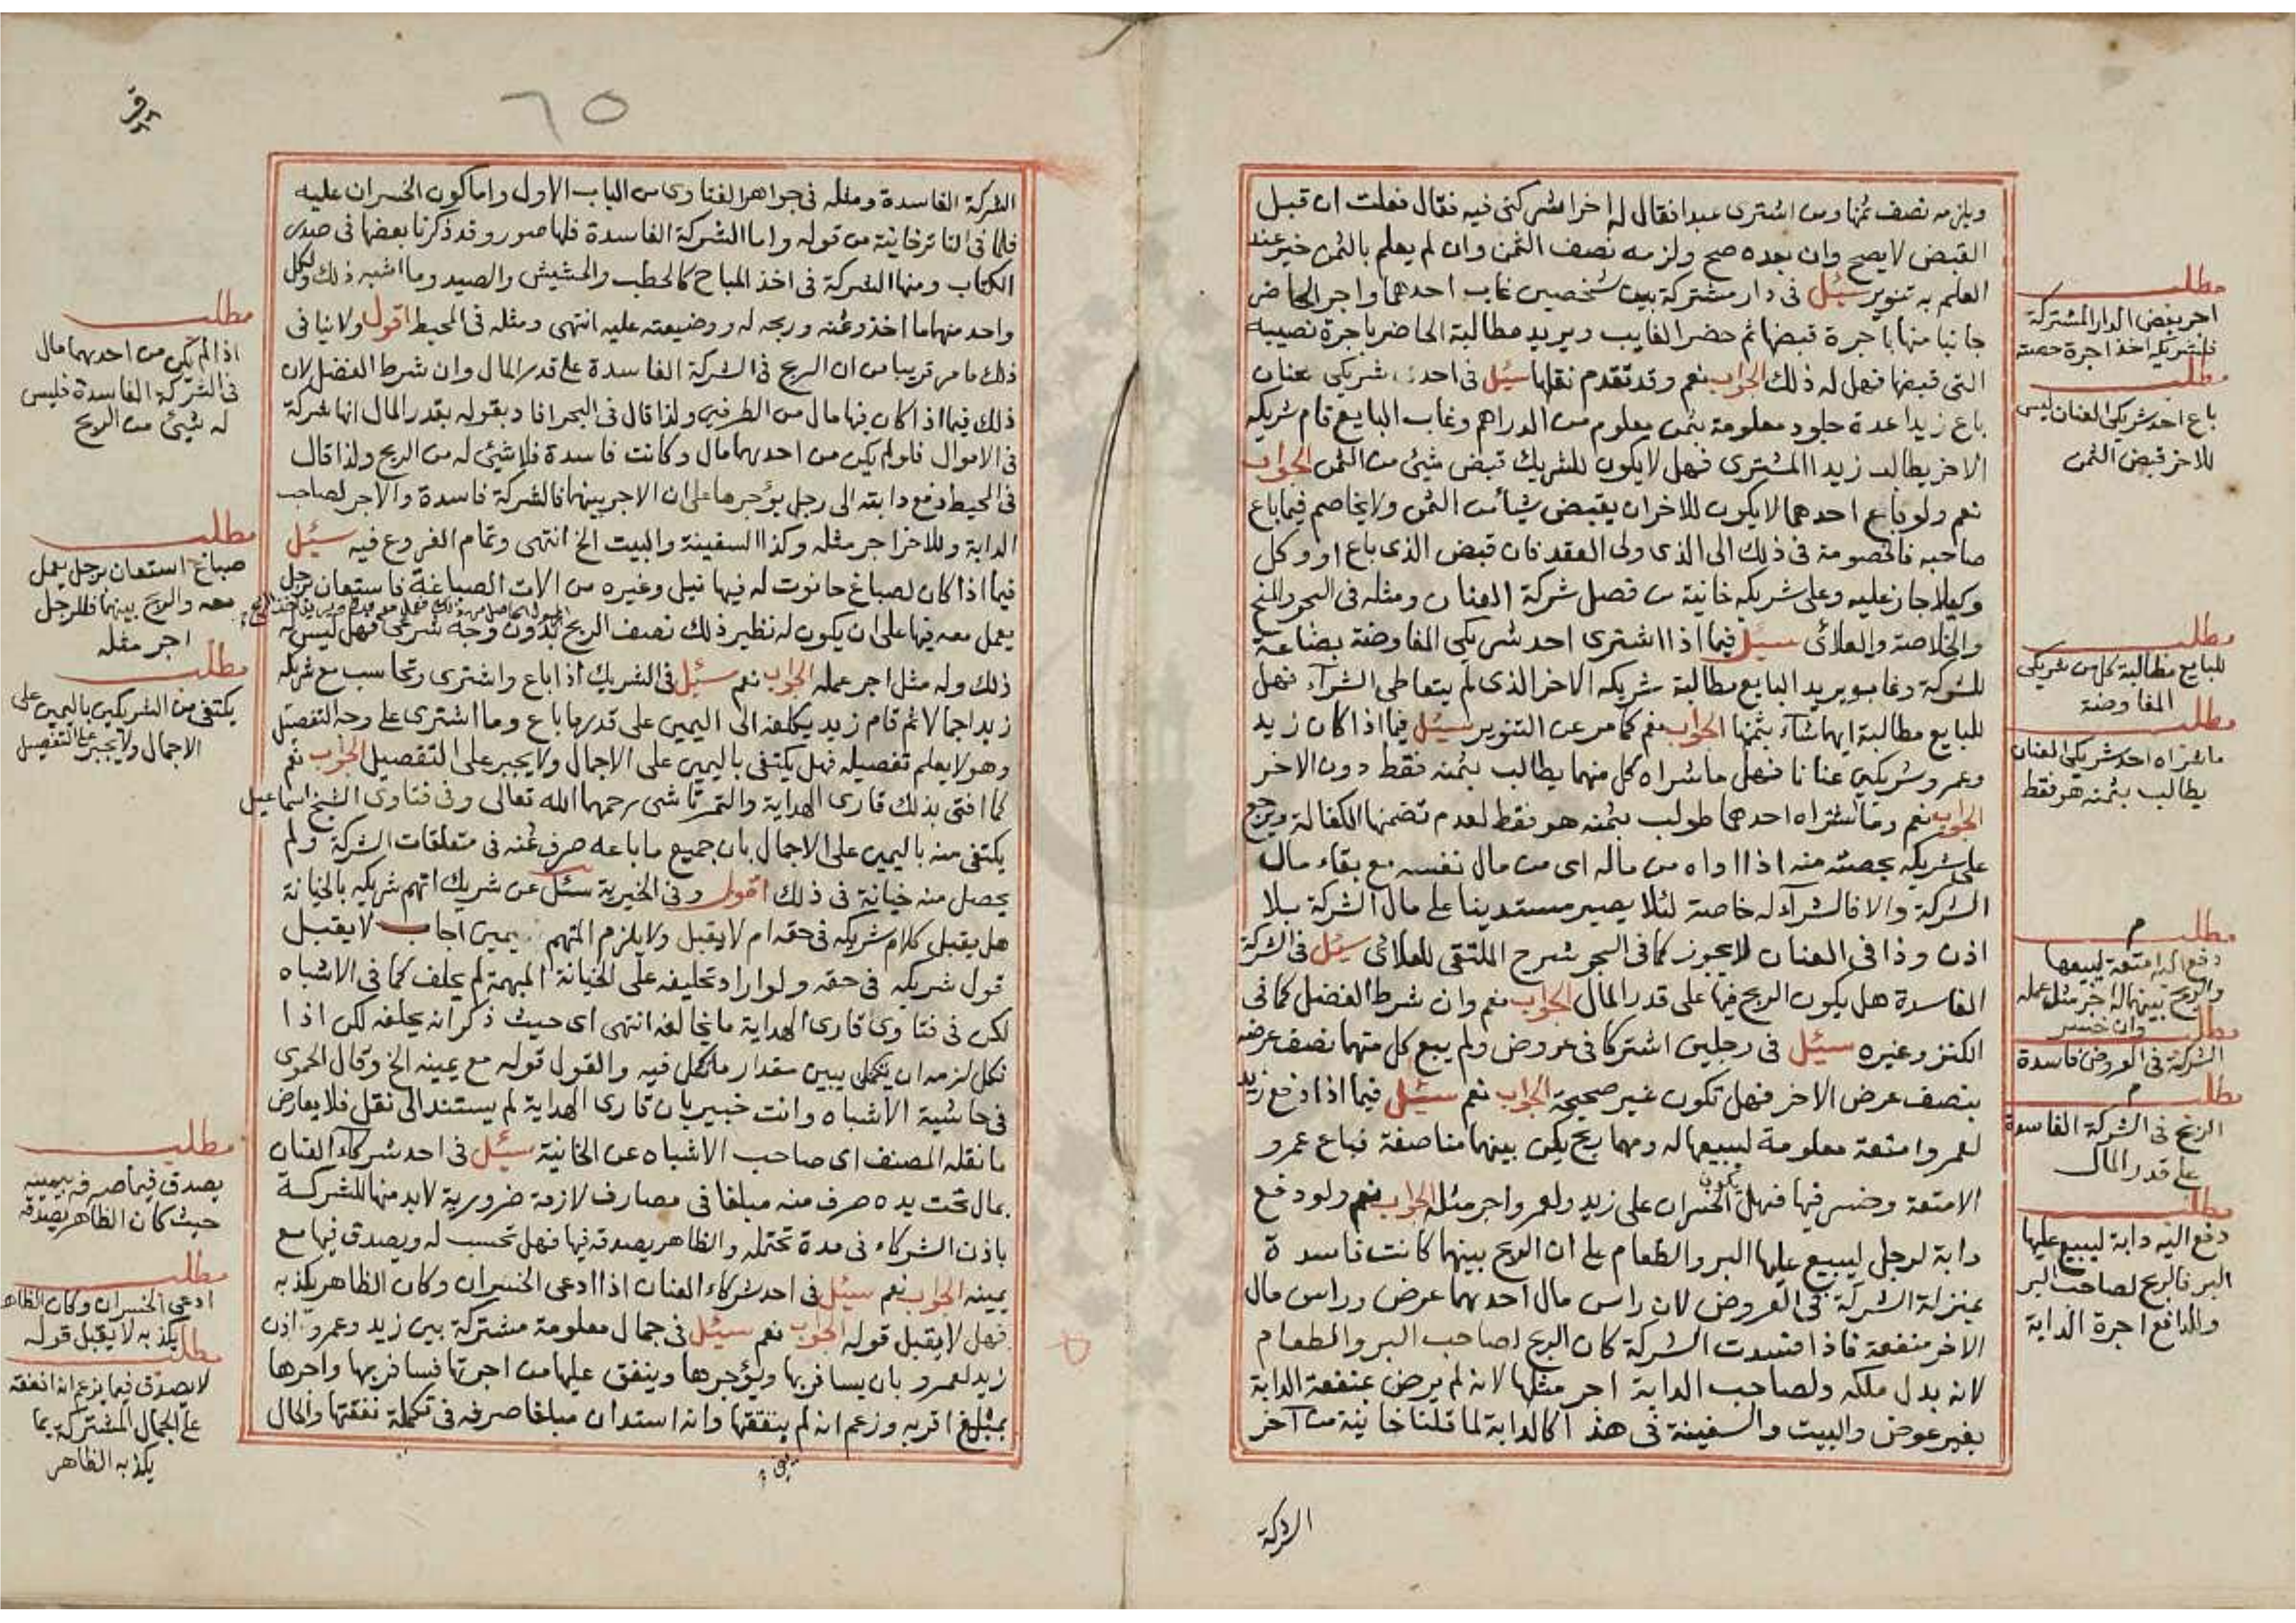 ويلزمه نصف ثمنها ومن اشترى عبدا فقال له اخر اشركنى فيه فقال فعلت ان قبل
القبض لا يصح وان بعده صح ولزمه نصف الثمن وان لم يعلم بالثمن خير عند
العلم به تنوير سئل فى دار مشتركة بين شخصين غاب احدهما واجر الحاضر
جانبا منها باجرة قبضها ثم حضر الغايب ويريد مطالبة الحاضر باجرة نصيبه
التى قبضها فهل له ذلك الجواب نعم وقد تقدم نقلها سئل فى احد شريكى عنان
باع زيدا عدة جلود معلومة بثمن معلوم من الدراهم وغاب البايع قام شريكه
الاخر يطالب زيدا المشترى فهل لا يكون للشريك قبض شيئ من الثمن الجواب
نعم ولو باع احدهما لا يكون للاخر ان يقبض شيأ من الثمن ولا يخاصم فيما باع
صاحبه فالخصومة فى ذلك الى الذى ولى العقد فان قبض الذى باع او وكل
وكيلا جاز عليه وعلى شريكه خانية من فصل شركة العنان ومثله فى البحر والمنح
والخلاصة والعلائى سئل فيما اذا اشترى احد شريكى المفاوضة بضاعة
للشركة وغاب ويريد البايع مطالبة شريكه الاخر الذى لم يتعاطى الشرآء فهل
للبايع مطالبة ايهما شاء بثمنها الجواب نعم كما مر عن التنوير سئل فيما اذا كان زيد
وعمرو شريكين عنانا فهل ما شراه كل منهما يطالب بثمنه فقط دون الاخر
الجواب نعم وما اشتراه احدهما طولب بثمنه هو فقط لعدم تضمنها الكفالة ويرجع
على شريكه بحصته منه اذا اداه من ماله اى من مال نفسه مع بقاء مال
الشركة والا فالشرآء له خاصة لئلا يصير مستدينا على مال الشركة بلا
اذن وذا فى العنان لا يجوز كما فى البحر شرح الملتقى للعلائى سئل فى الشركة
الفاسدة هل يكون الربح فيها على قدر المال الجواب نعم وان شرط الفضل كما فى
الكنز وغيره سئل فى رجلين اشتركا فى عروض ولم يبع كل منهما نصف عرضه
بنصف عرض الاخر فهل تكون غير صحيحة الجواب نعم سئل فيما اذا دفع زيد
لعمرو امتعة معلومة ليبيعها له ومهما ربح يكن بينهما مناصفة فباع عمرو
الامتعة وخسر فيها فهل يكون الخسران على زيد ولعمرو اجر مثله الجواب نعم ولو دفع
دابة لرجل ليبيع عليها البر والطعام على ان الربح بينهما كانت فاسدة
بمنزلة الشركة فى العروض لان راس مال احدهما عرض وراس مال
الاخر منفعة فاذا فسدت الشركة كان الربح لصاحب البر والطعام
لانه بدل ملكه ولصاحب الدابة اجر مثلها لانه لم يرض بمنفعة الدابة
بغير عوض والبيت والسفينة فى هذا كالدابة لما قلنا خانية من آخر
الشركة
مطلب
اجر بعض الدار المشتركة
فلشريكه اخذ اجرة حصته
مطلب
باع احد شريكى العنان ليس
للاخر قبض الثمن
مطلب
للبايع مطالبة كل من شريكى
المفاوضة
مطلب
ما شراه احد شريكى العنان
يطالب بثمنه هو فقط
مطلب م
دفع اليه امتعة ليبيعها
والربح بينهما له اجر مثل عمله
وان خسر
مطلب
الشركة فى العروض فاسدة
مطلب م
الربح فى الشركة الفاسدة
على قدر المال
مطلب
دفع اليه دابة ليبيع عليها
البر فالربح لصاحب البر
وللدافع اجرة الدابة
٦٥
الشركة الفاسدة ومثله فى جواهر الفتاوى من الباب الاول واما كون الخسران عليه
فلما فى التاترخانية من قوله واما الشركة الفاسدة فلها صور وقد ذكرنا بعضها فى صدر
الكتاب ومنها الشركة فى اخذ المباح كالحطب والحشيش والصيد وما اشبه ذلك ولكل
واحد منهما ما اخذ وثمنه وربحه له ووضيعته عليه انتهى ومثله فى المحيط اقول ولا ينافى
ذلك ما مر قريبا من ان الربح فى الشركة الفاسدة على قدر المال وان شرط الفضل لان
ذلك فيما اذا كان فيها مال من الطرفين ولذا قال فى البحر افاد بقوله بقدر المال انها شركة
فى الاموال فلو لم يكن من احدهما مال وكانت فاسدة فلا شيئ له من الربح ولذا قال
فى المحيط دفع دابته الى رجل يؤجرها على ان الاجر بينهما فالشركة فاسدة والاجر لصاحب
الدابة وللاخر اجر مثله وكذا السفينة والبيت الخ انتهى وتمام الفروع فيه سئل
فيما اذا كان لصباغ حانوت له فيها نيل وغيره من الات الصباغة فاستعان برجل
يعمل معه فيها على ان يكون له نظير ذلك نصف الربح بدون وجه شرعى فهل ليس له
ذلك وله مثل اجر عمله الجواب نعم سئل فى الشريك اذا باع واشترى وتحاسب مع شريكه
زيد اجمالا ثم قام زيد يكلفه الى اليمين على قدر ما باع وما اشترى على وجه التفصيل
وهو لا يعلم تفصيله فهل يكتفى باليمين على الاجمال ولا يجبر على التفصيل الجواب نعم
كما افتى بذلك قارى الهداية والتمرتاشى رحمهما الله تعالى وفى فتاوى الشيخ اسماعيل
يكتفى منه باليمين على الاجمال بان جميع ما باعه صرف ثمنه فى متعلقات الشركة ولم
يحصل منه خيانة فى ذلك اقول وفى الخيرية سئل عن شريك اتهم شريكه بالخيانة
هل يقبل كلام شريكه فى حقه ام لا يقبل ولا يلزم المتهم يمين اجاب لا يقبل
قول شريكه فى حقه ولو اراد تحليفه على الخيانة المبهمة لم يحلف كما فى الاشباه
لكن فى فتاوى قارى الهداية ما يخالفه انتهى اى حيث ذكر انه يحلف لكن اذا
نكل لزمه ان يبين مقدار ما نكل فيه والقول قوله مع يمينه الخ وقال الحموى
فى حاشية الاشباه وانت خبير بان قارى الهداية لم يستند الى نقل فلا يعارض
ما نقله المصنف اى صاحب الاشباه عن الخانية سئل فى احد شركآء العنان
بمال تحت يده صرف منه مبلغا فى مصارف لازمة ضرورية لا بد منها للشركة
باذن الشركاء فى مدة تحتمله والظاهر يصدقه فيها فهل تحسب له ويصدق فيها مع
يمينه الجواب نعم سئل فى احد شركاء العنان اذا ادعى الخسران وكان الظاهر يكذبه
فهل لا يقبل قوله الجواب نعم سئل فى جمال معلومة مشتركة بين زيد وعمرو اذن
زيد لعمرو بان يسافر بها ويؤجرها وينفق عليها من اجرتها فسافر بها واجرها
بمبلغ اقر به وزعم انه لم ينفقها وانه استدان مبلغا صرفه فى تكملة نفقتها والحال
مطلب
اذا لم يكن من احدهما مال
فى الشركة الفاسدة فليس
له شيئ من الربح
مطلب
صباغ استعان برجل يعمل
معه والربح بينهما فللرجل
اجر مثله
مطلب
يكتفى من الشريكين باليمين على
الاجمال ولا يجبر على التفصيل
مطلب
يصدق فيما صرفه بيمينه
حيث كان الظاهر يصدقه
مطلب
ادعى الخسران وكان الظاهر
يكذبه لا يقبل قوله
مطلب
لا يصدق فيما يزعم انه انفقه
على الجمال المشتركة بما
يكذبه الظاهر